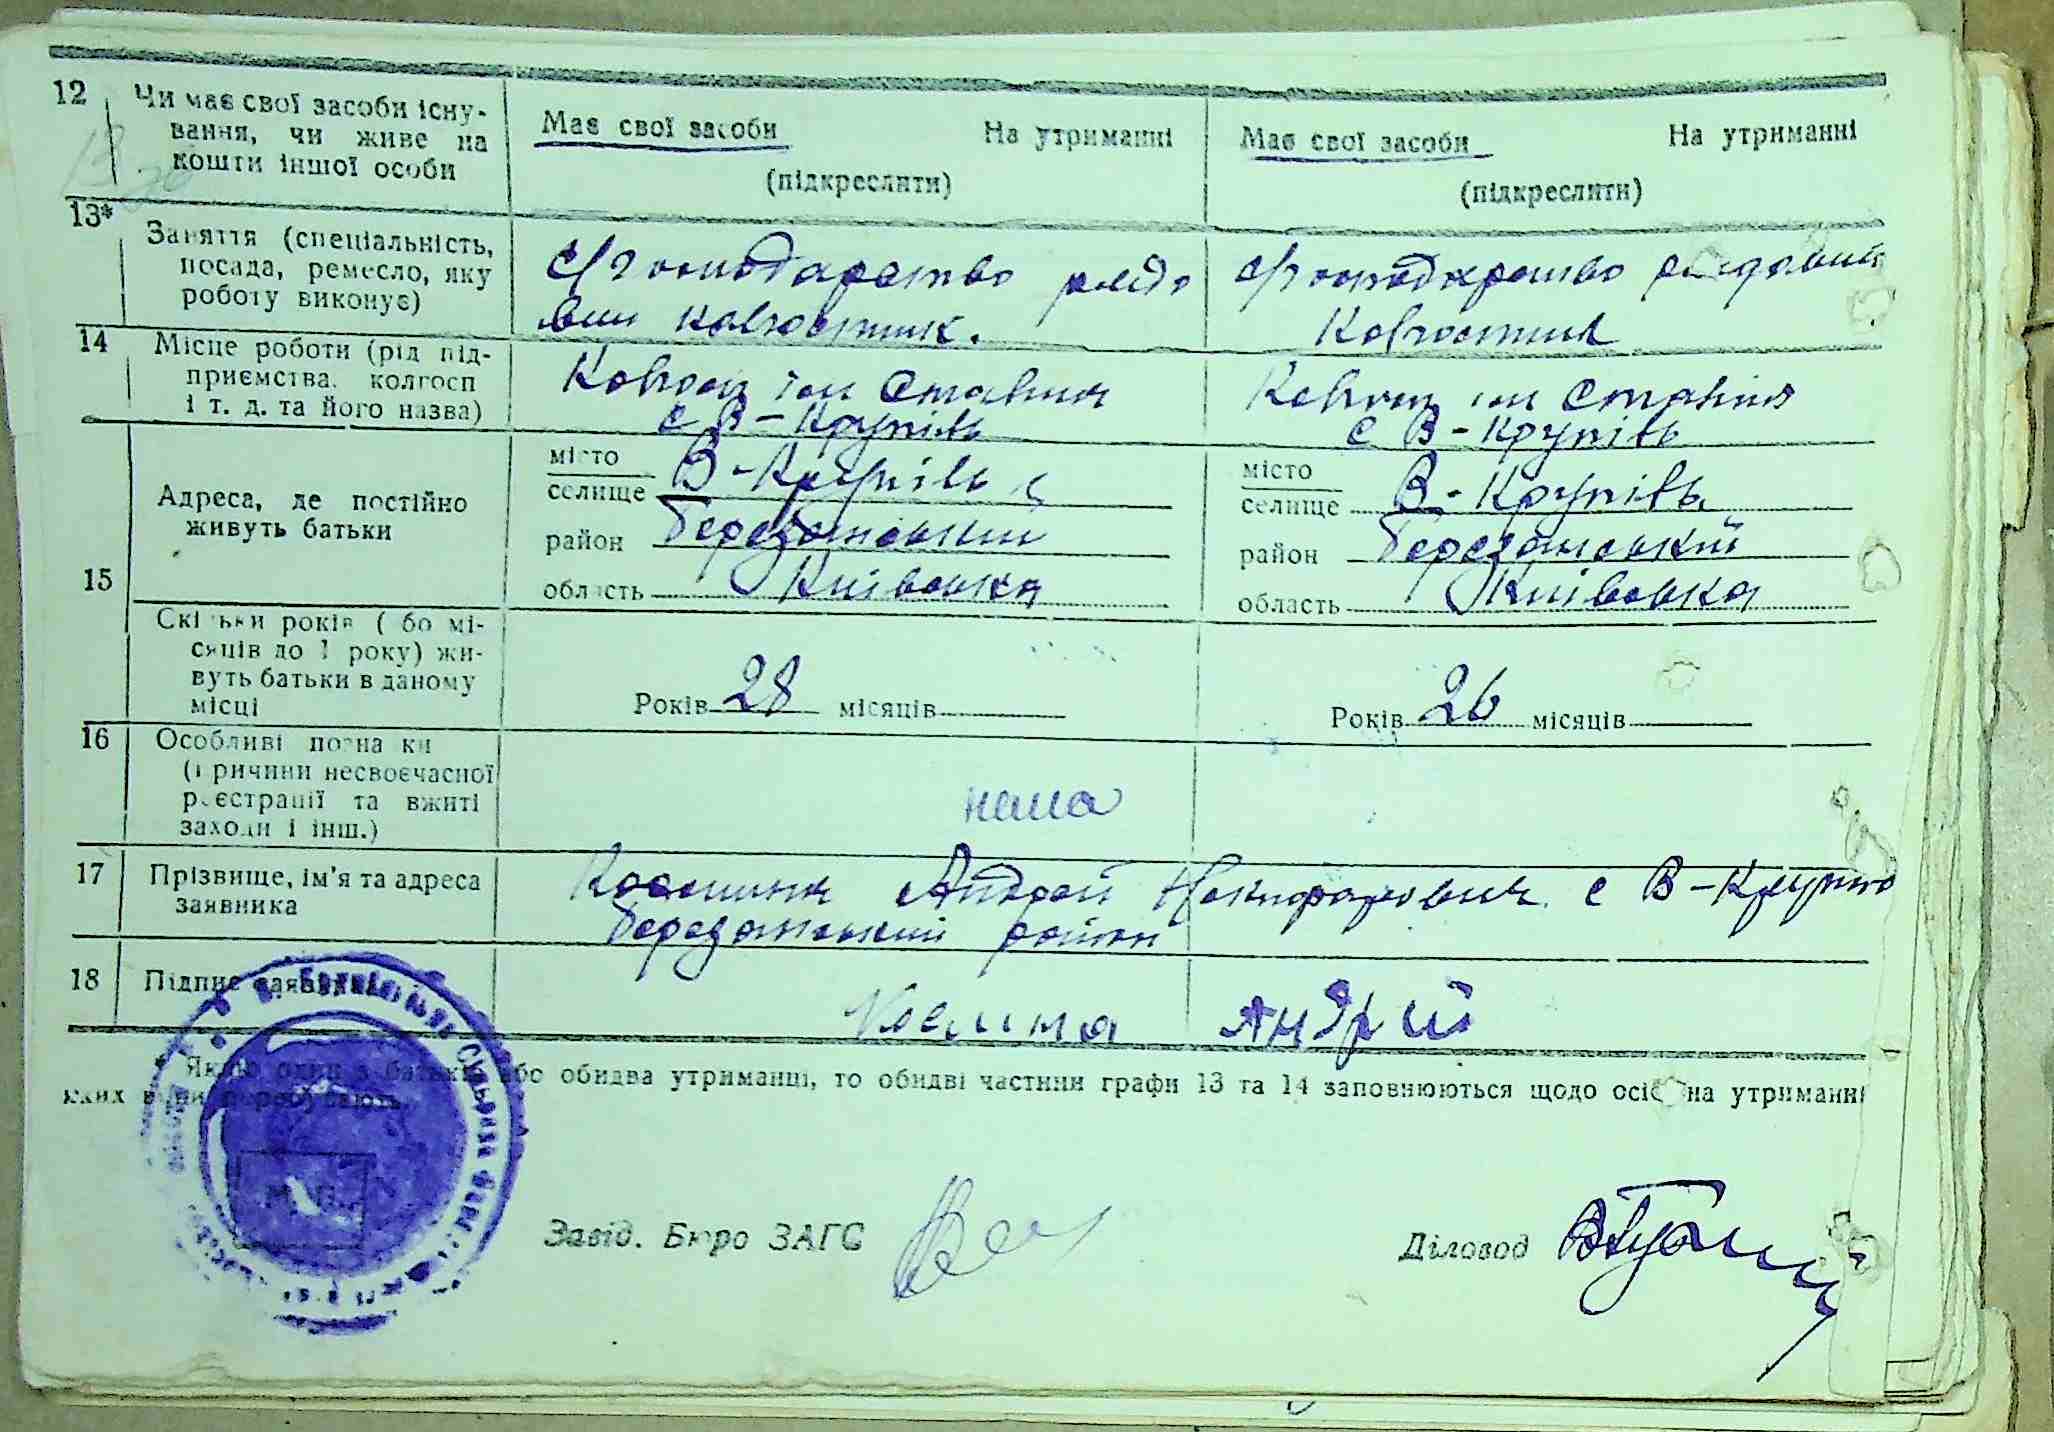 12 Чи має свої засоби існу-
вання, чи живе на
кошти іншої особи
Має свої засоби На утриманні
(підкреслити)
Має свої засоби На утриманні
(підкреслити)
13* Заняття (спеціальність,
посада, ремесло, яку
роботу виконує)
с/господарство рядо
вий колгоспник.
с/господарство рядовий
Колгоспник
14 Місце роботи (рід під-
приємства, колгосп
і т. д. та його назва)
Колгосп ім Сталіна
с В-Крупіль
Колгосп ім Сталіна
с В-Крупіль
15 Адреса, де постійно
живуть батьки
місто
селище В-Крупіль
район Березанський
область Київська
місто
селище В-Крупіль
район Березанський
область Київська
Скільки років (або мі-
сяців до 1 року) жи-
вуть батьки в даному
місці
Років 28 місяців
Років 26 місяців
16 Особливі познаки
(причини несвоєчасної
реєстрації та вжиті
заходи і інш.)
нема
17 Прізвище, ім'я та адреса
заявника
Андрей с В-Крупіль
Березанський район
18 Підпис заявника
Андрій
* Якщо один з батьків або обидва утриманці, то обидві частини графи 13 та 14 заповнюються щодо осіб на утриманні
яких вони перебувають.
М. П.
Завід. Бюро ЗАГС
Діловод